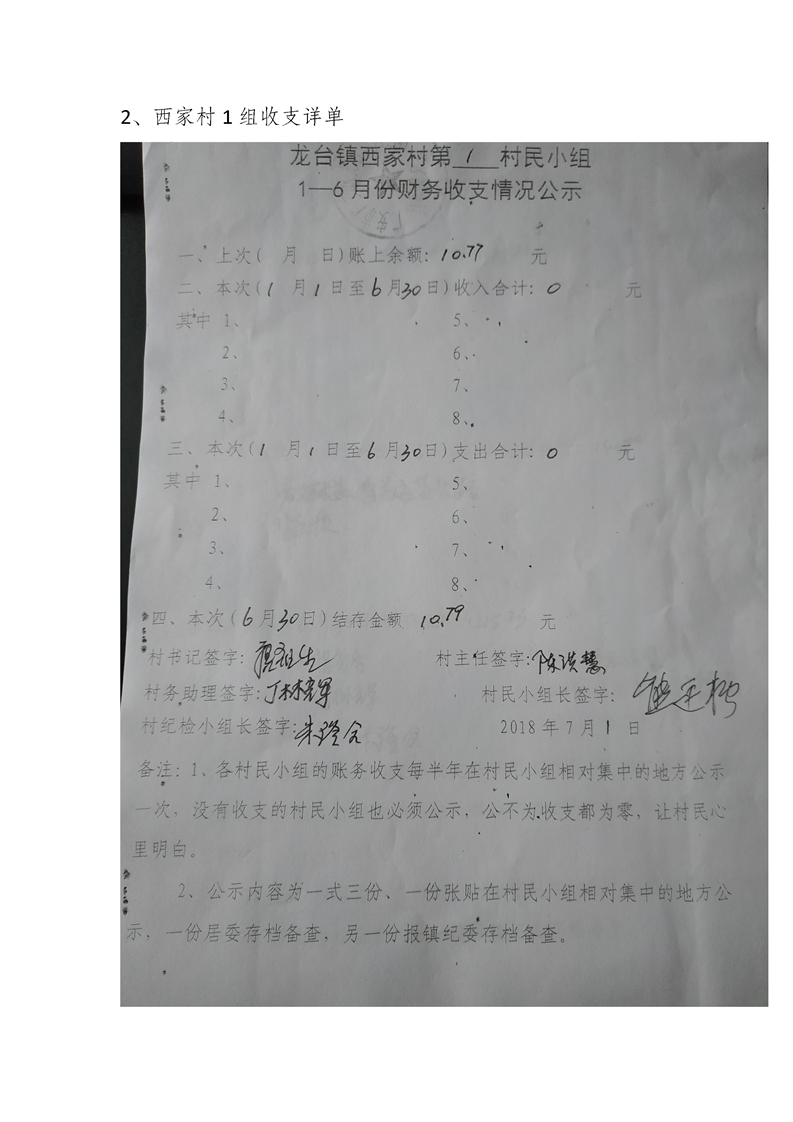 2、西家村1组收支详单
龙台镇西家村第 1 村民小组
1—6月份财务收支情况公示
一、上次( 月 日)账上余额: 10.77 元
二、本次(1 月1日至6月30日)收入合计: 0 元
其中 1、 5、
2、 6、
3、 7、
4、 8、
三、本次(1 月1日至6月30日)支出合计: 0 元
其中 1、 5、
2、 6、
3、 7、
4、 8、
四、本次(6月30日)结存金额 10.79 元
村书记签字: 村主任签字:陈洪慧
村务助理签字: 村民小组长签字:
村纪检小组长签字: 2018年7月1日
备注:1、各村民小组的账务收支每半年在村民小组相对集中的地方公示
一次,没有收支的村民小组也必须公示,公不为收支都为零,让村民心
里明白。
2、公示内容为一式三份、一份张贴在村民小组相对集中的地方公
示,一份居委存档备查,另一份报镇纪委存档备查。